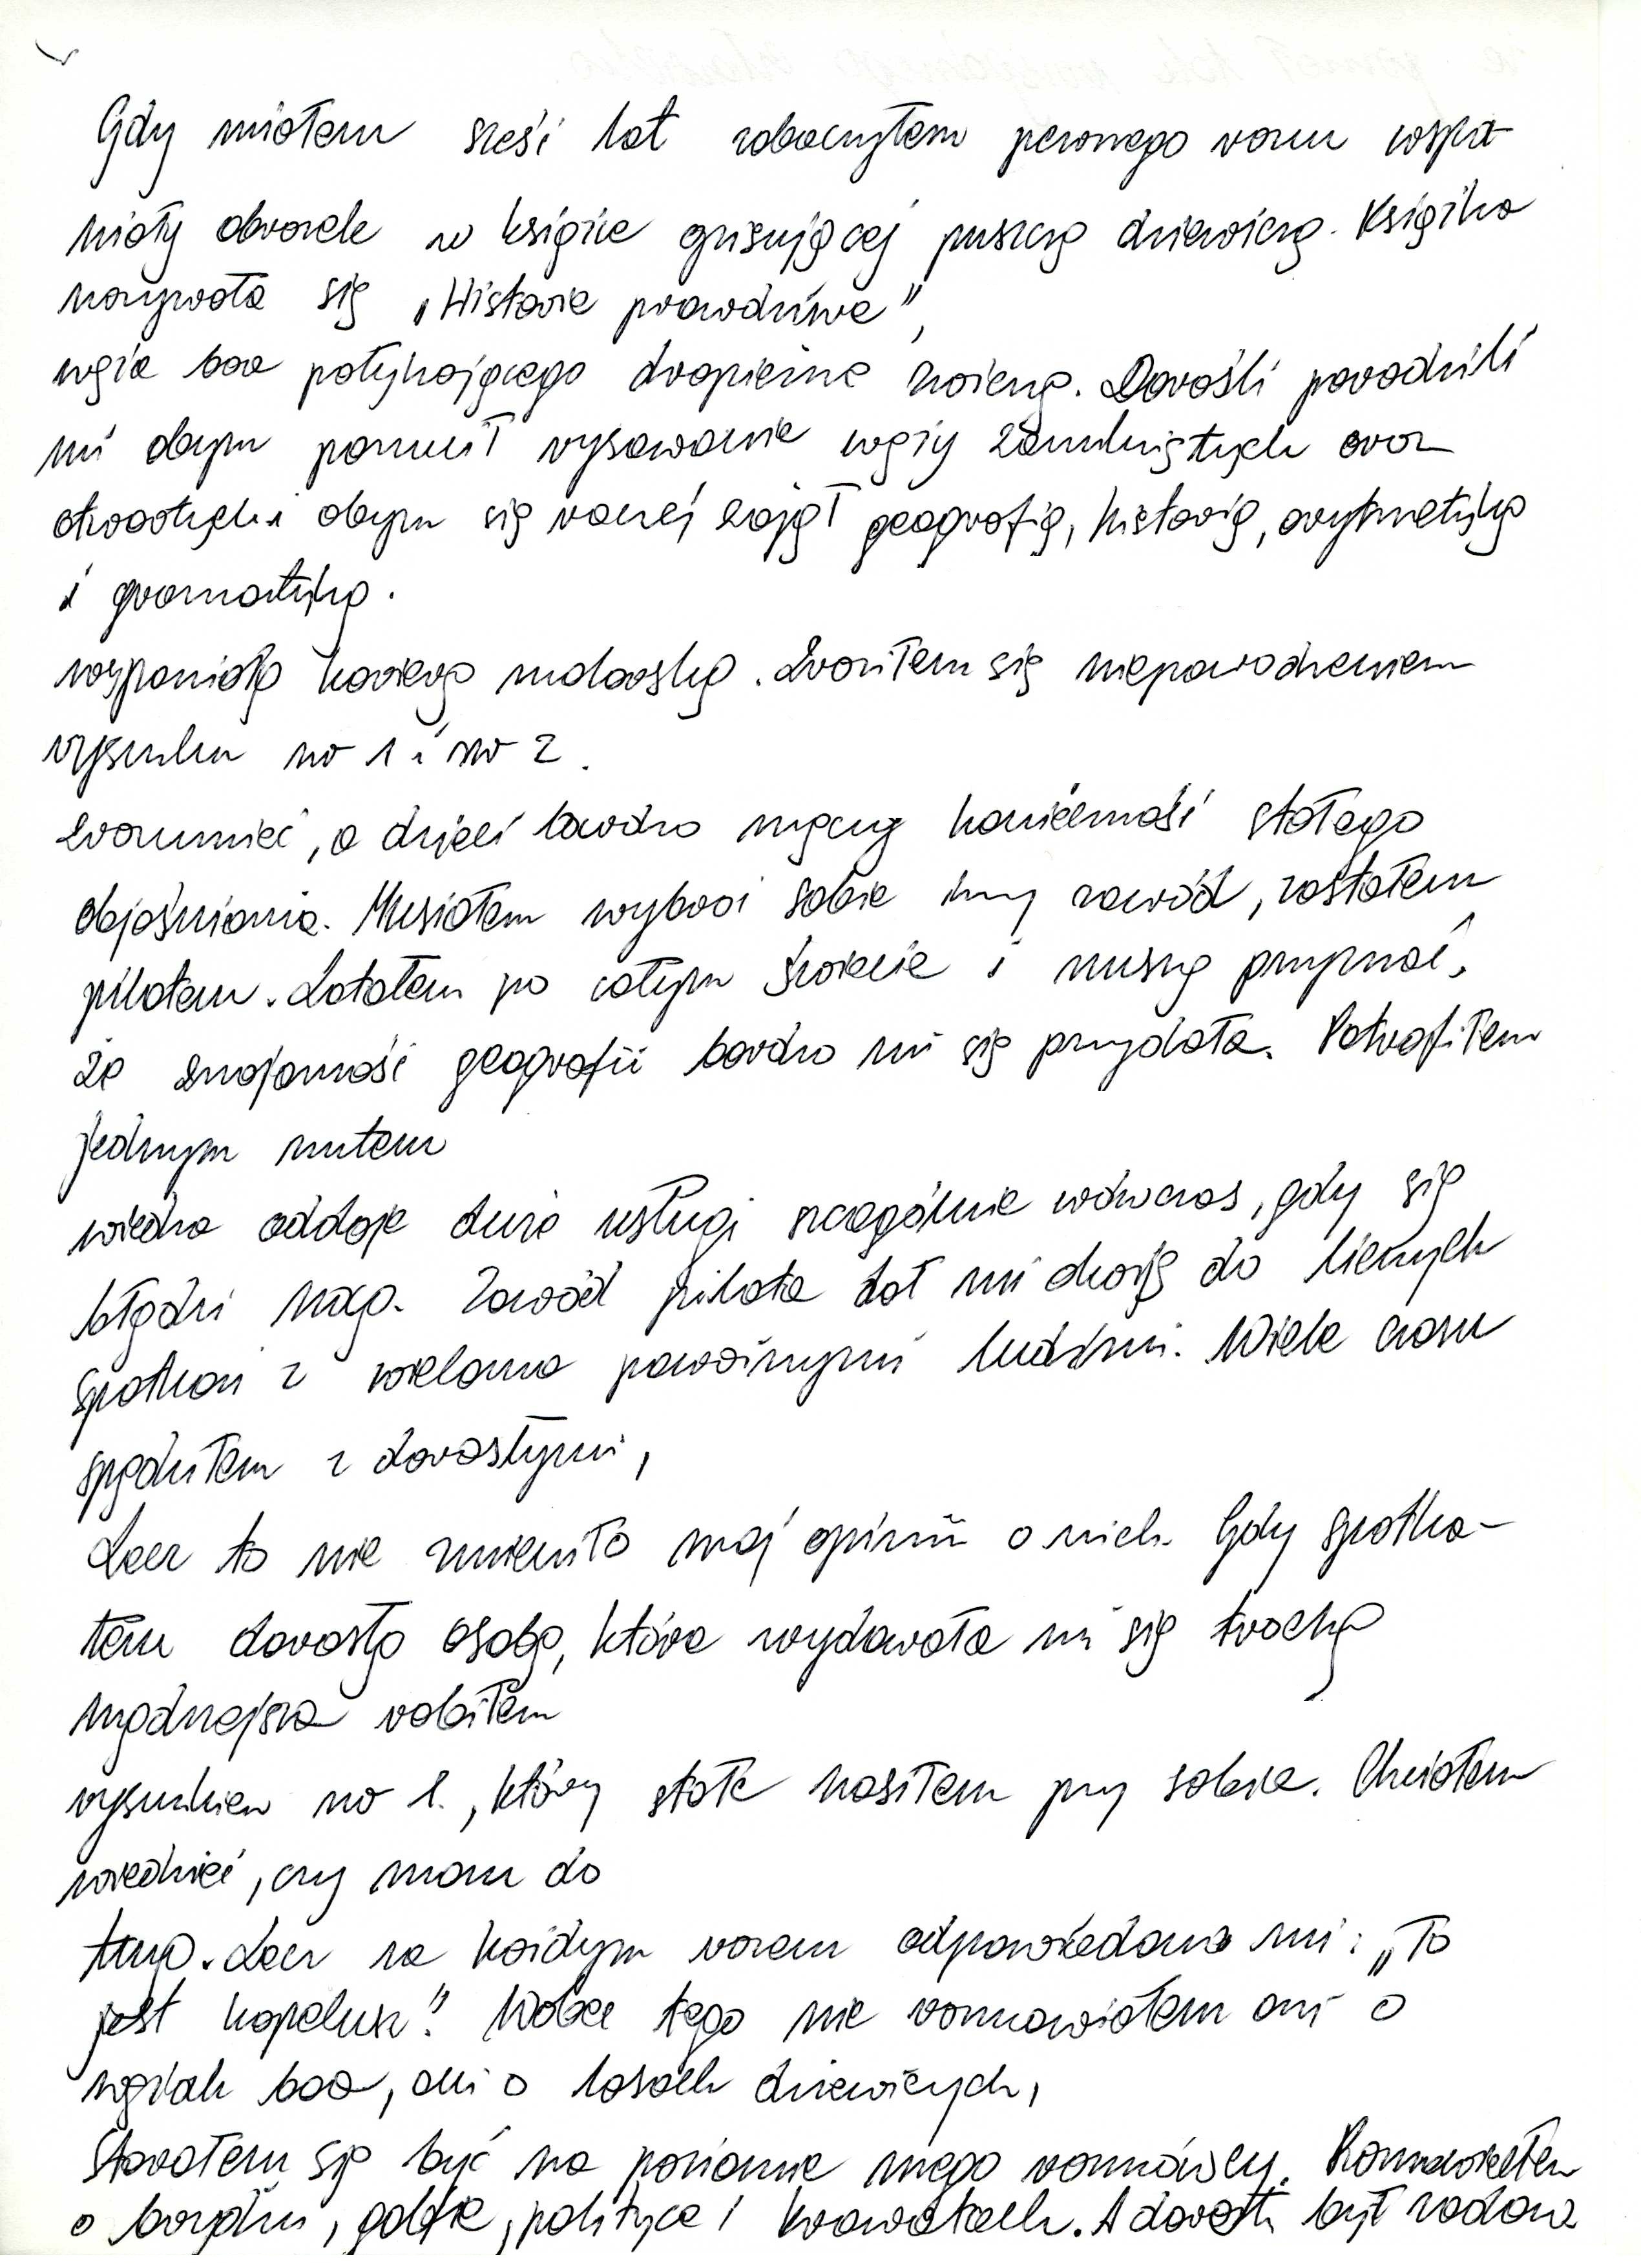 Gdy miałem sześć lat zobaczyłem pewnego razu wspa-
niały obrazek w książce opisującej puszczę dziewiczą. Książka
nazywała się „Historie prawdziwe”,
węża boa połykającego drapieżne zwierzę. Dorośli poradzili
mi abym porzucił rysowanie węży zamkniętych oraz
otwartych i abym się raczej zajął geografią, historią, arytmetyką
i gramatyką.
wspaniałą karierę malarską. Zraziłem się niepowodzeniem
rysunku nr 1 i nr 2.
zrozumieć, a dzieci bardzo męczy konieczność stałego
objaśniania. Musiałem wybrać sobie inny zawód, zostałem
pilotem. Latałem po całym świecie i muszę przyznać,
że znajomość geografii bardzo mi się przydała. Potrafiłem
jednym rzutem
wiedza oddaje duże usługi szczególnie wówczas, gdy się
błądzi nocą. Zawód pilota dał mi okazję do licznych
spotkań z wieloma poważnymi ludźmi. Wiele czasu
spędziłem z dorosłymi,
Lecz to nie zmieniło mej opinii o nich. Gdy spotka-
łem dorosłą osobę, która wydawała mi się trochę
mądrzejsza robiłem
rysunkiem nr 1., który stale nosiłem przy sobie. Chciałem
wiedzieć, czy mam do
Lecz za każdym razem odpowiadano mi: „To
jest kapelusz”. Wobec tego nie rozmawiałem ani o
wężach boa, ani o lasach dziewiczych,
Starałem się być na poziomie mego rozmówcy. Rozmawiałem
o brydżu, golfie, polityce i krawatach. A dorosły był rad